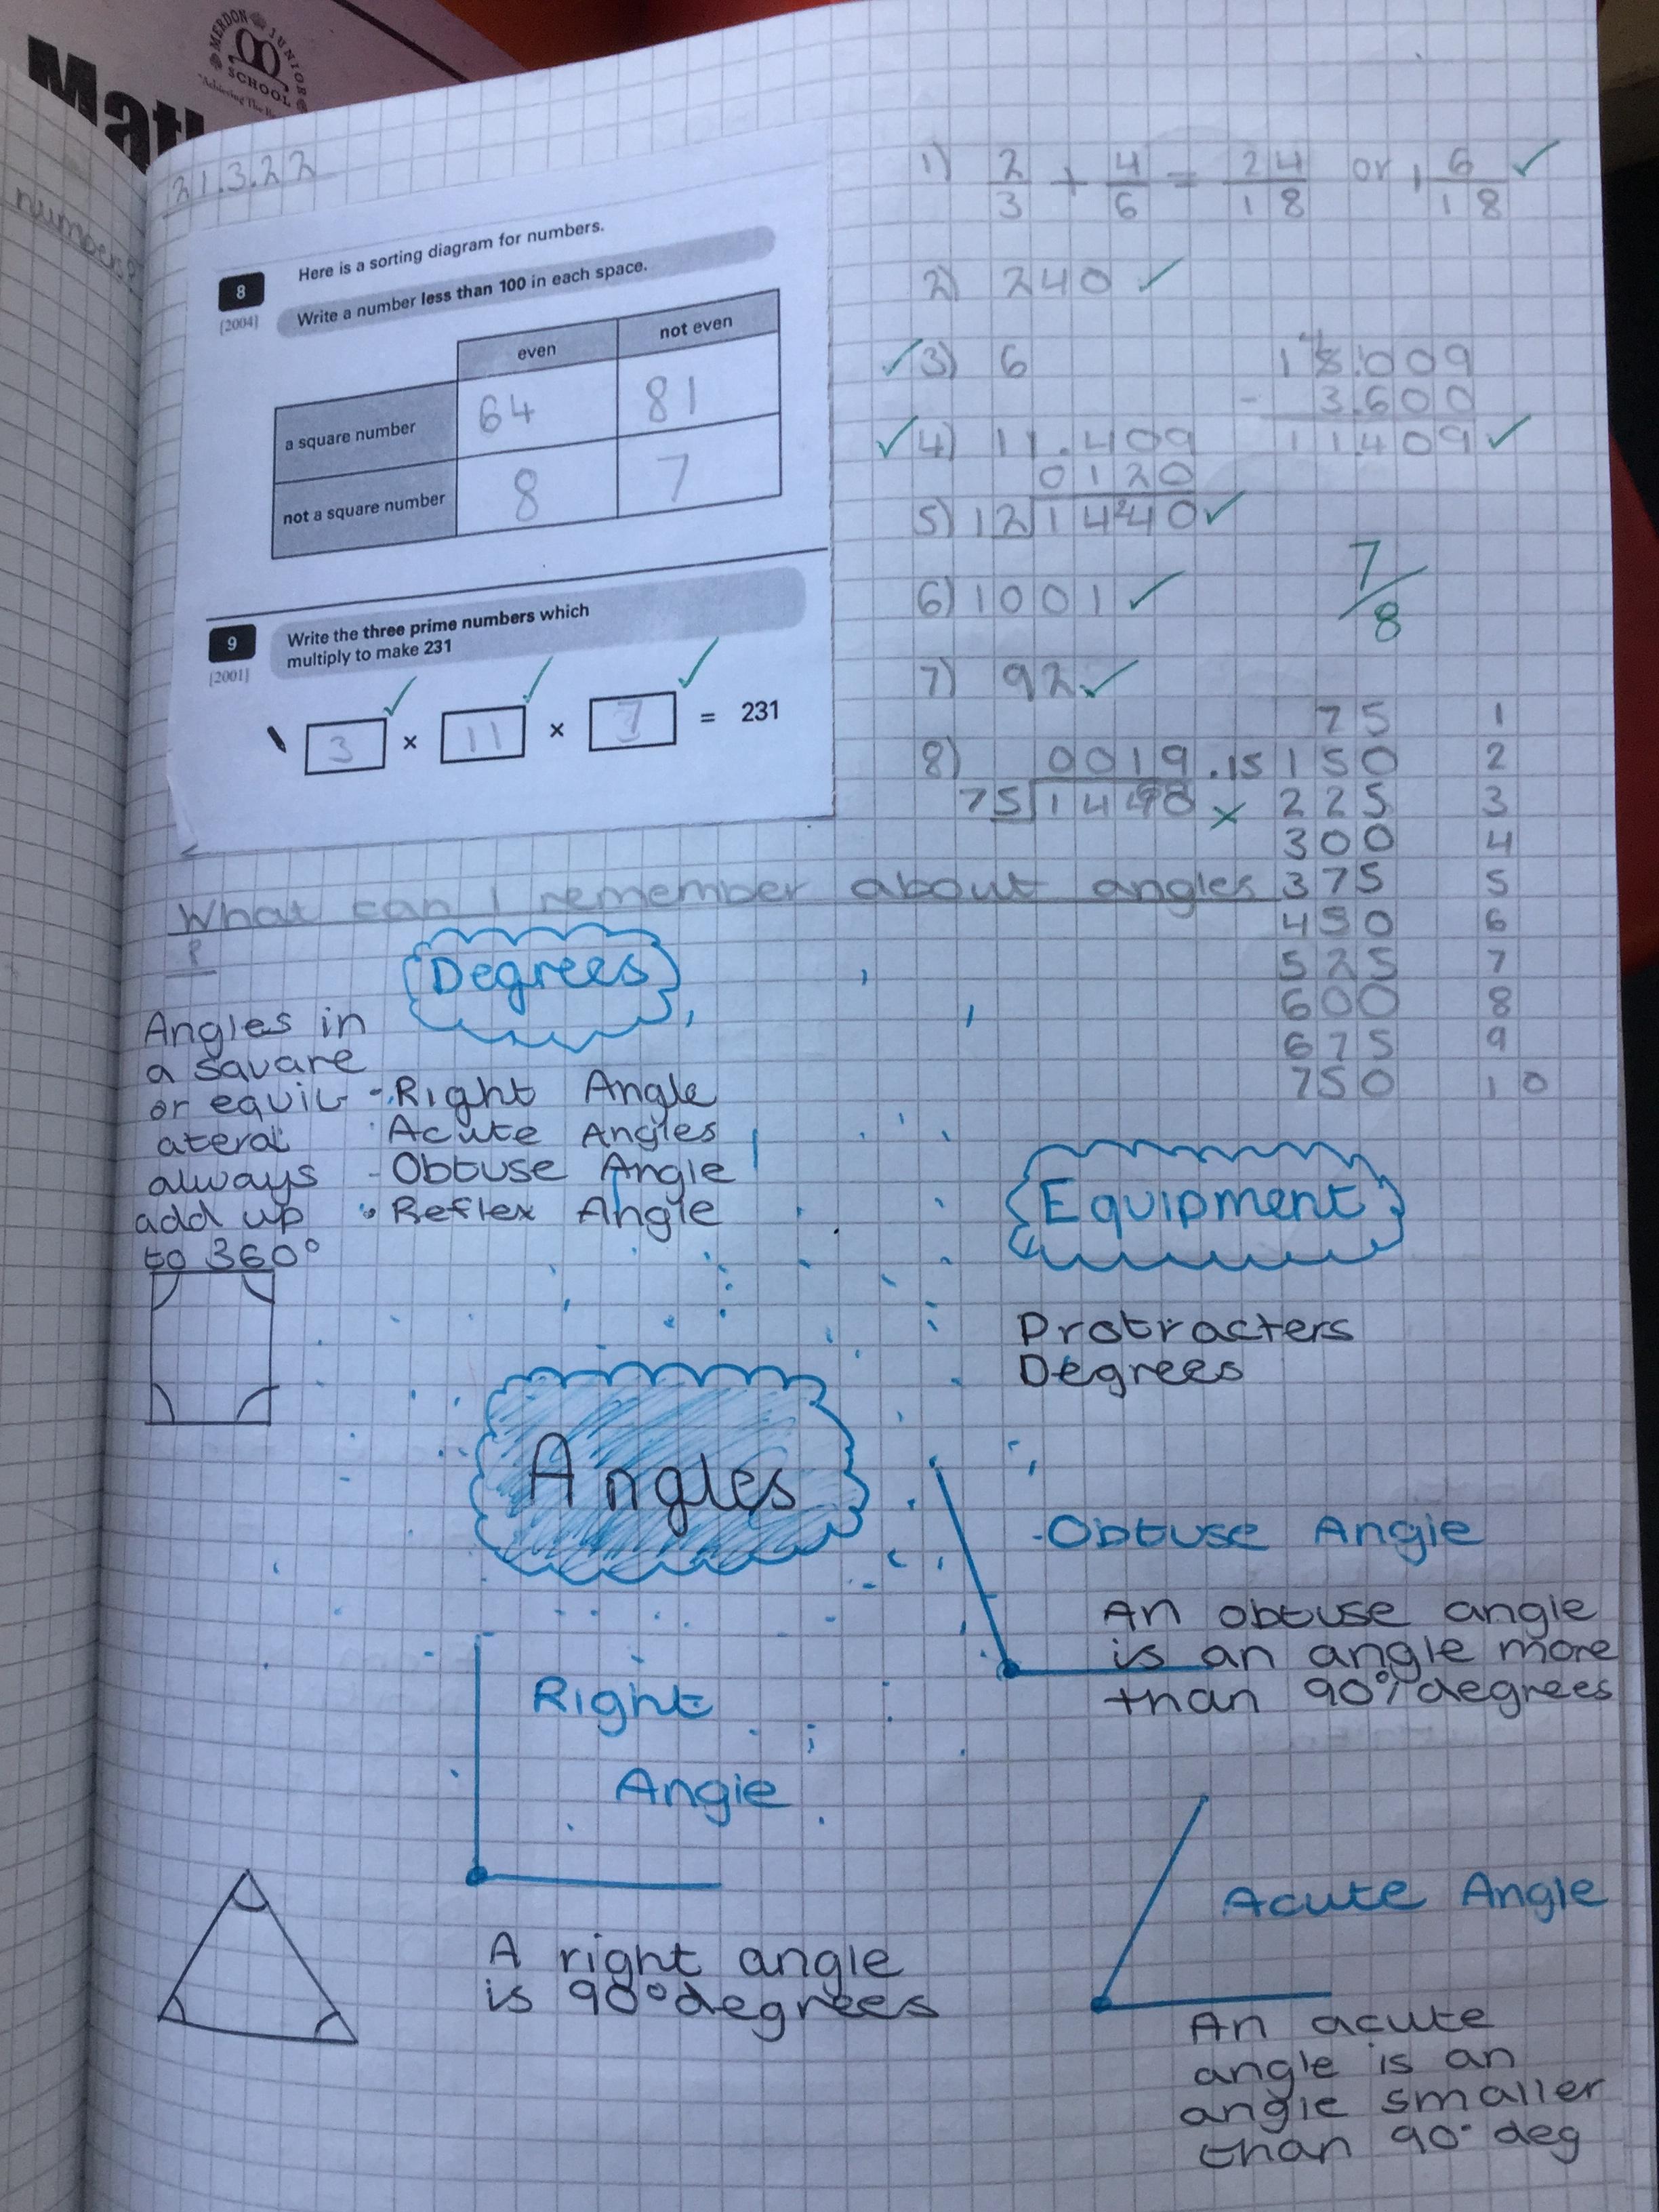 Math
MERDON JUNIOR SCHOOL
numbers
21.3.22
8
[2004]
Here is a sorting diagram for numbers.
Write a number less than 100 in each space.
even
not even
a square number
64
81
not a square number
8
7
9
[2001]
Write the three prime numbers which
multiply to make 231
3 × 11 × 7 = 231
1) 2/3 + 4/6 = 24/18 or 1 6/18 ✓
2) 240 ✓
✓ 3) 6
18.009
- 3.600
11.409 ✓
✓ 4) 11.409
0120
5) 12 1440 ✓
6) 1001 ✓
7/8
7) 92 ✓
8) 0019.15
75 1498 ×
75 1
150 2
225 3
300 4
375 5
450 6
525 7
600 8
675 9
750 10
What can I remember about angles
?
Degrees
Angles in
a square
or equil
ateral
always
add up
to 360°
- Right Angle
Acute Angles
- Obtuse Angle
Reflex Angle
Equipment
Protracters
Degrees
Angles
- Obtuse Angle
An obtuse angle
is an angle more
than 90° degrees
Right
Angle
A right angle
is 90° degrees
Acute Angle
An acute
angle is an
angle smaller
than 90° deg